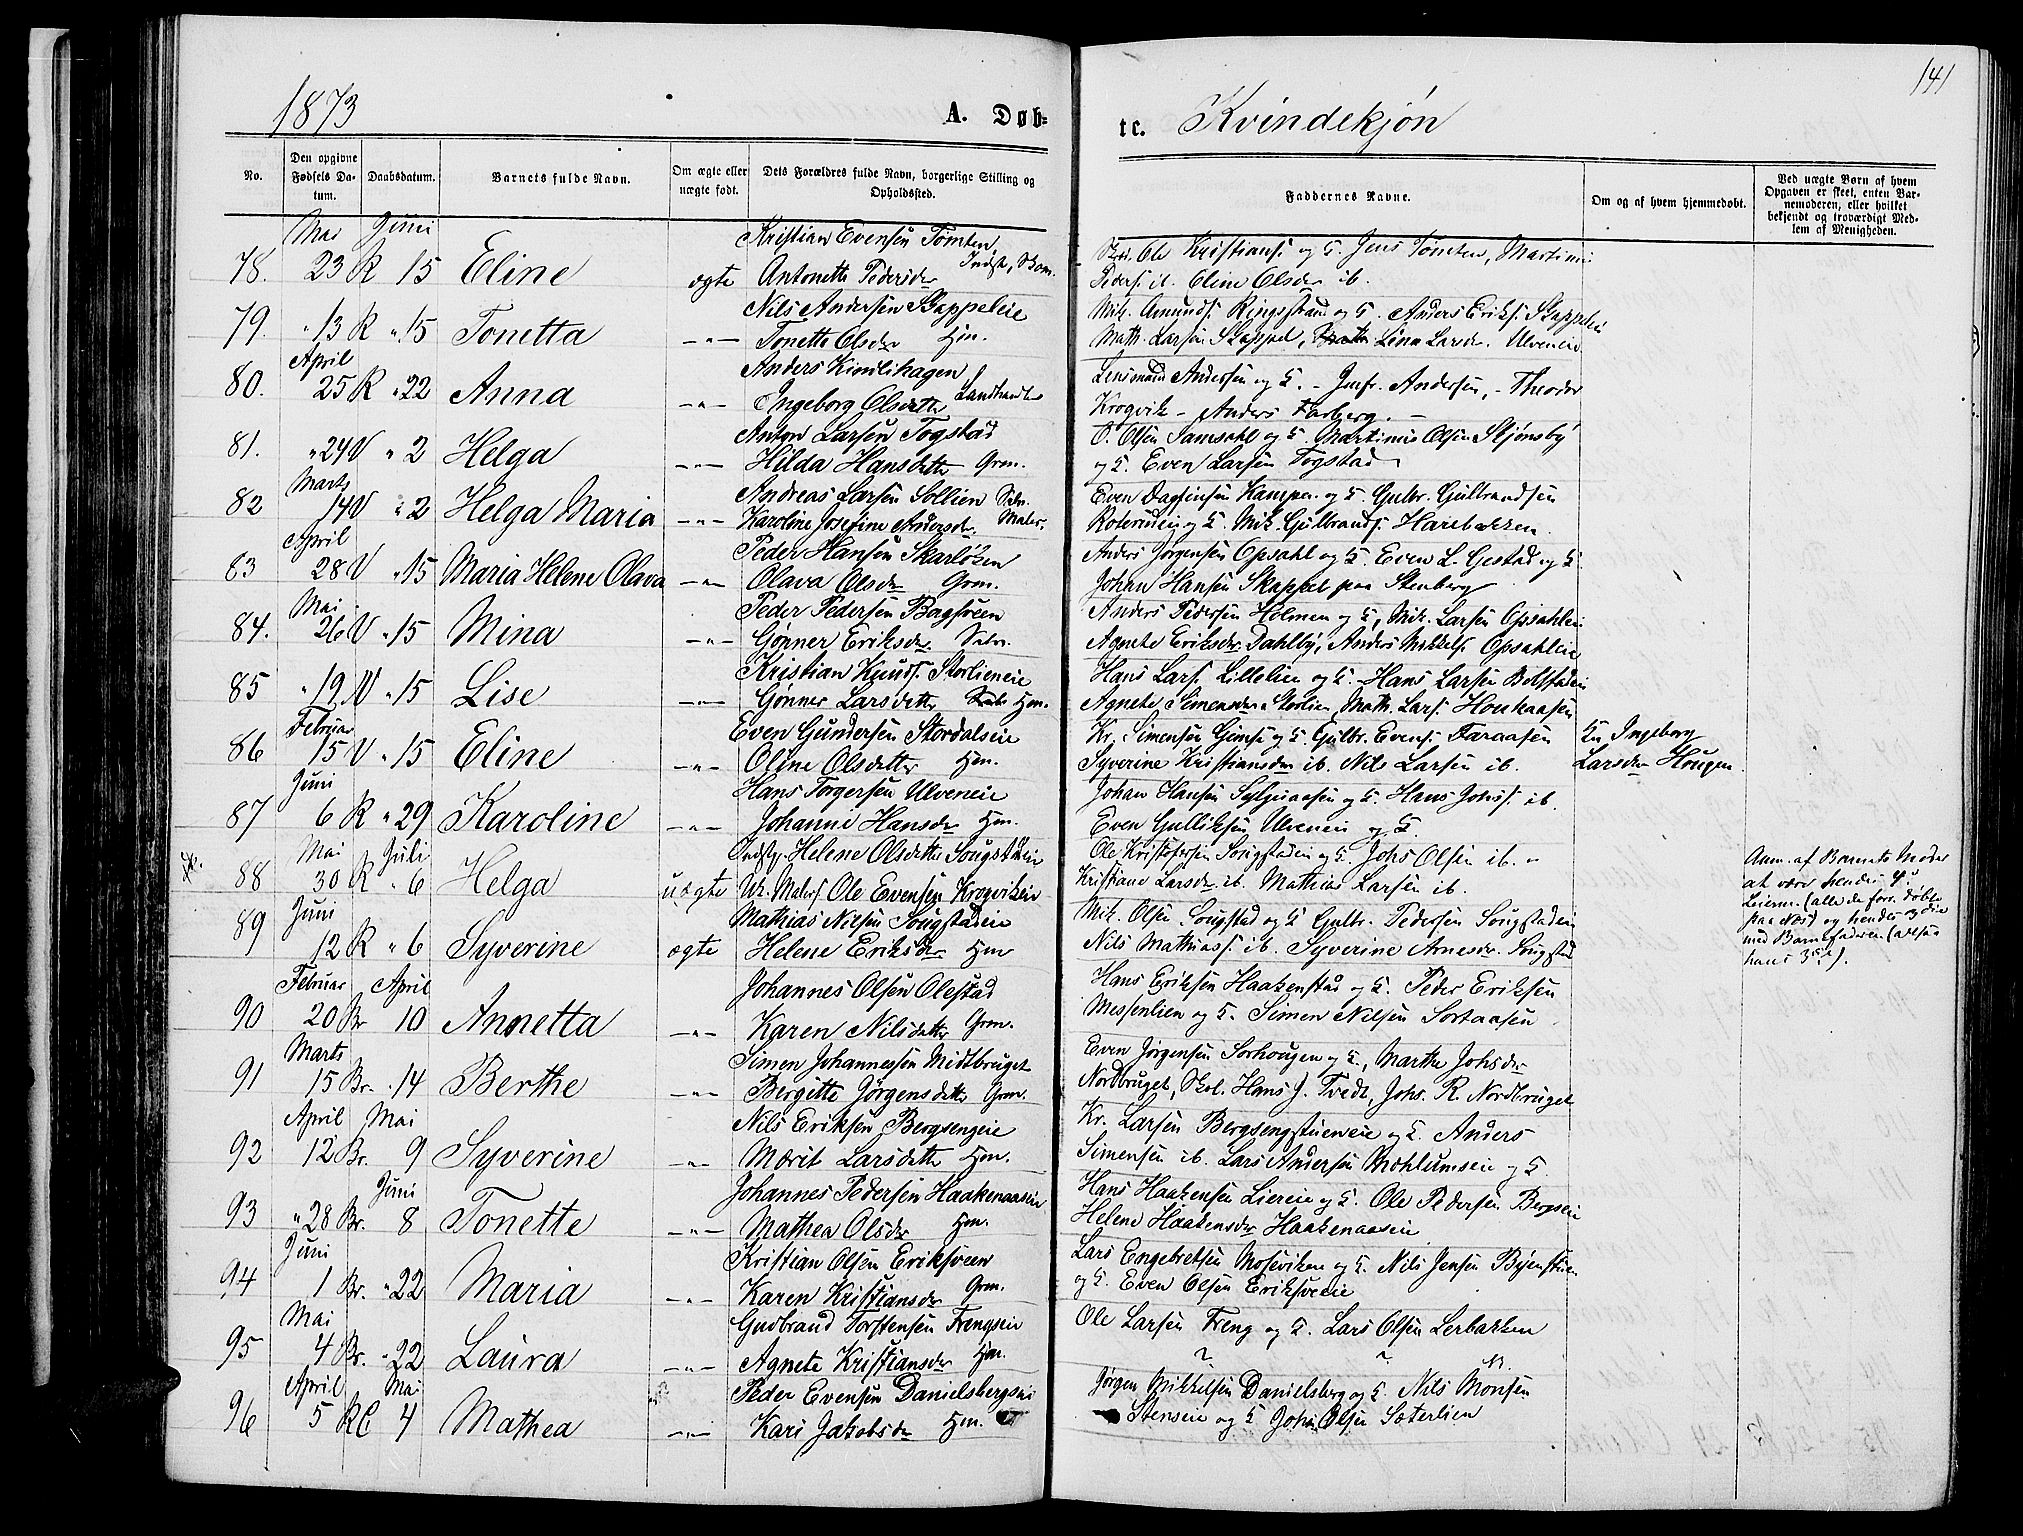 1873
A. Døb-
te. Kvindekjön
141
No.
Den opgivne Fødsels Da-tum.
Daabsdatum.
Barnets fulde Navn.
Om ægte eller uægte født.
Dets Forældres fulde Navn, borgerlige Stilling og Opholdssted.
Faddernes Navne.
Om og af hvem hjemmedøbt.
Ved uægte Børn af hvem Opgaven er skeet, enten Bar-nemoderen, eller hvilket bekjendt og troværdigt Med-lem af Menigheden.
Mai Juni Kristian Evensen Tömten
78. 23 R 15 Eline ægte Antonette Pedersdr Indst, Skom.
Ole Kristians. og G. Jens Tömten, Martinus
Peders. ib. Eline Olsdr ib.
Nils Andersen Skappeleie
79. " 13 R " 15 Tonetta -"- Tonette Olsdr Hm.
Mik. Amunds. Ringstrand og G. Anders Eriks. Skappeleie
Math. Larsen Skappel, Lina Larsdr. Ulveneie
April Anders Kindlihagen
80. 25 R " 22 Anna -"- Ingeborg Olsdatter Landhandler
Lensmand Andersen og G. - Jmfr. Andersen, - Theodor
Krogvik - Anders Farberg. -
Anton Larsen Togstad
81. " 24 V " 2 Helga -"- Hilda Hansdatter Grm.
O. Olsen Samsahl og G. Martinus Olsen Stjönsby
og G. Even Larsen Togstad
Marts Andreas Larsen Sollien Selv.
82 14 V " 2 Helga Maria -"- Karoline Josefine Andersdr. Maler.
Even Dagfinsen Kampen og G. Gulbr. Gulbrandsen
Roterudeie og G. Mik. Gulbrands. Harebakken
April Peder Hansen Skarlösen
83 28 V " 15 Maria Helene Olava -"- Olava Olsdr Grm.
Anders Jörgensen Opsahl og G. Even L. Gestad og G.
Johan Hansen Skappel paa Stenberg
Mai Peder Pedersen Bagsveen
84. 26 V " 15 Mina -"- Gönner Eriksdr. Selv.
Anders Pedersen Holmen og G, Mik. Larsen Opsahleie
Agnete Eriksdr. Dahlby, Anders Mikkels. Opsahleie
Kristian Knuds. Storlieneie
85 " 19 V " 15 Lise -"- Gönner Larsdatter Hm.
Hans Lars. Lillelien og G. Hans Larsen Bolstadeie
Agnete Simensdr Storlien, Math. Lars. Houkaasen
Februar Even Gundersen Stordalseie
86 15 V " 15 Eline -"- Oline Olsdatter Hm.
Kr. Simensen Gimse og G. Gulbr. Evens. Faraasen
Syverine Kristiansdr ib. Nils Larsen ib.
Ingeborg
Larsdr Hougen
Juni Hans Torgersen Ulveneie
87 6 R " 29 Karoline -"- Johanne Hansdr Hm.
Johan Hansen Syljuaasen og G. Hans Johs. ib.
Even Gulliksen Ulveneie og G.
Mai Juli Indstp. Helene Olsdatter Sougstadeie
88 30 R " 6 Helga uægte Uk. Malers. Ole Evensen Krogvikeie
Ole Kristofersen Sougstadeie og G. Johs Olsen ib. -
Kristiane Larsdr ib. Mathias Larsen ib.
Anm. af Barnets Moder
at være hendes 4de
Leierm. (alle de forr. döbte
paa Næs) og hendes 2die
med Barnefaderen (altsaa
hans 3die).
Juni Mathias Nilsen Sougstadeie
89 12 R " 6 Syverine ægte Helene Eriksdr Hm
Mik. Olsen Sougstad og G Gulbr. Pedersen Sougstadeie
Nils Mathias. ib. Syverine Arnesdr. Sougstad
Februar April Johannes Olsen Olestad
90 20 Br 10 Annetta -"- Karen Nilsdatter Grm.
Hans Eriksen Haakenstad og G. Peder Eriksen
Messenlien og G. Simen Nilsen Sortaasen
Marts Simen Johannessen Midtbruget
91 15 Br. " 14 Berthe -"- Bergitte Jörgensdatter Grm.
Even Jörgensen Sorhougen og G., Marthe Johsdr
Nordbruget, Skol. Hans J. Tvedt, Johs. R. Nordbruget
April Mai Nils Eriksen Bergsengeie
92 12 Br. 9 Syverine -"- Marit Larsdatter Hm.
Kr. Larsen Bergsengstueneie og G. Anders
Simensen ib. Lars Andersen Mohlumseie og G
Juni Johannes Pedersen Haakenaaseie
93 " 28 Br. 8 Tonette -"- Mathea Olsdr Hm.
Hans Haakensen Liereie og G. Ole Pedersen Bergseie
Helene Haakensdr Haakenaaseie
Juni Kristian Olsen Eriksveen
94 1 Br. " 22 Maria -"- Karen Kristiansdr Grm.
Lars Engebretsen Moseviken og G. Nils Jensen Bjenstuen
og G. Even Olsen Eriksveeie
Mai Gudbrand Torstensen Frengseie
95 4 Br. " 22 Laura -"- Agnete Kristiansdr Hm.
Ole Larsen Freng og G. Lars Olsen Lerbakken
April Mai Peder Evensen Danielsbergseie
96 5 RC 4 Mathea -"- Kari Jakobsdr Hm.
Jörgen Mikkelsen Danielsberg og G. Nils Monsen
Stenseie og G Johs Olsen Sæterlien